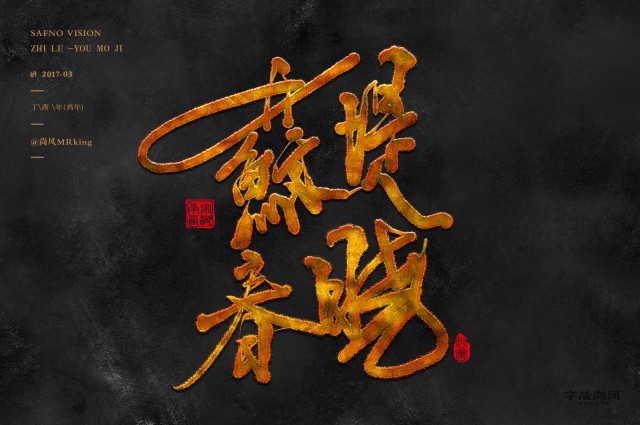 SAFNO VISION
ZHI LE —YOU MO JI
2017-03
丁\酉\年(鸡年)
@尚风MRking
蘇堤
春曉
字哉尚风